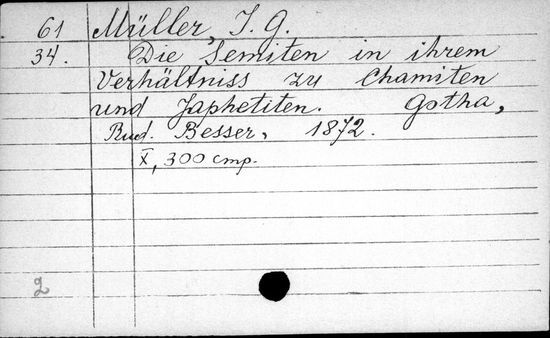 61 Müller, J. G.
34. Die Semiten in ihrem
Verhältniss zu Chamiten
und Japhetiten. Gotha,
Rud. Besser, 1872.
X, 300 стр.
2